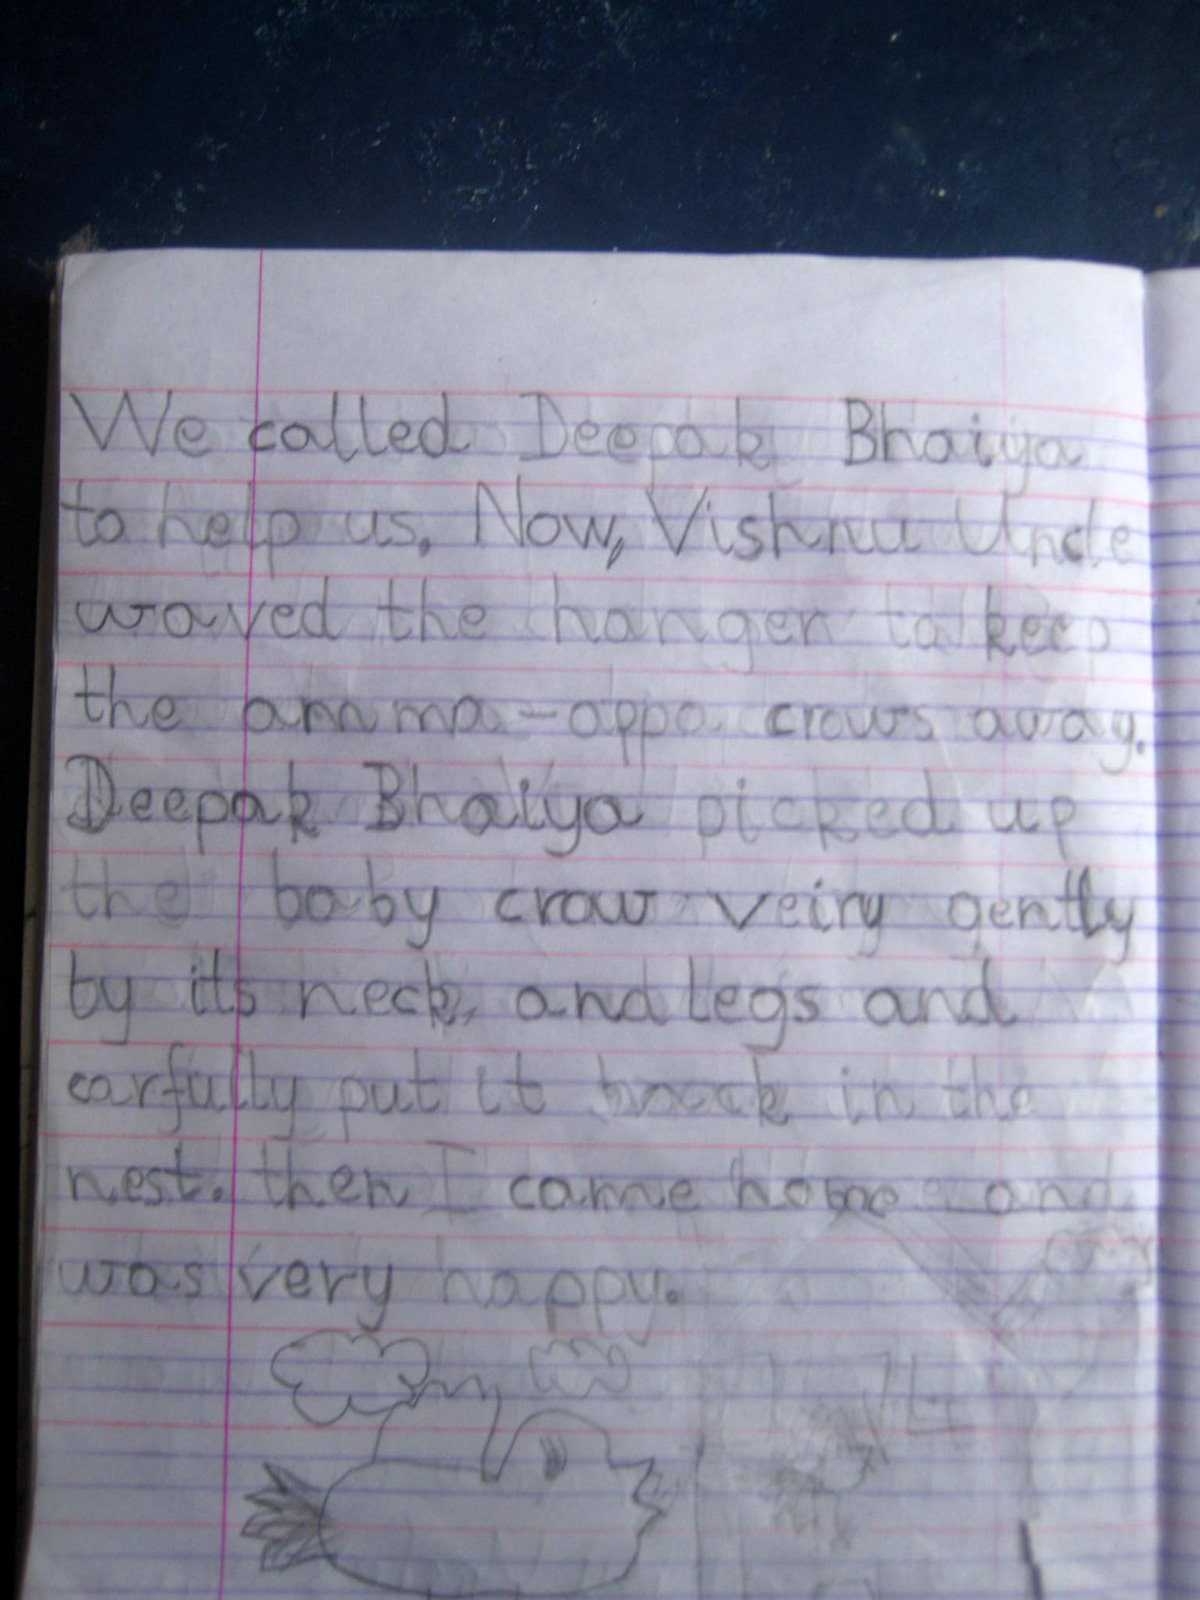 We called Deepak Bhaiya
to help us. Now, Vishnu Uncle
waved the hanger to keep
the amma-appa crows away.
Deepak Bhaiya picked up
the baby crow veiry gently
by its neck, and legs and
carfully put it back in the
nest. then I came home and
was very happy.